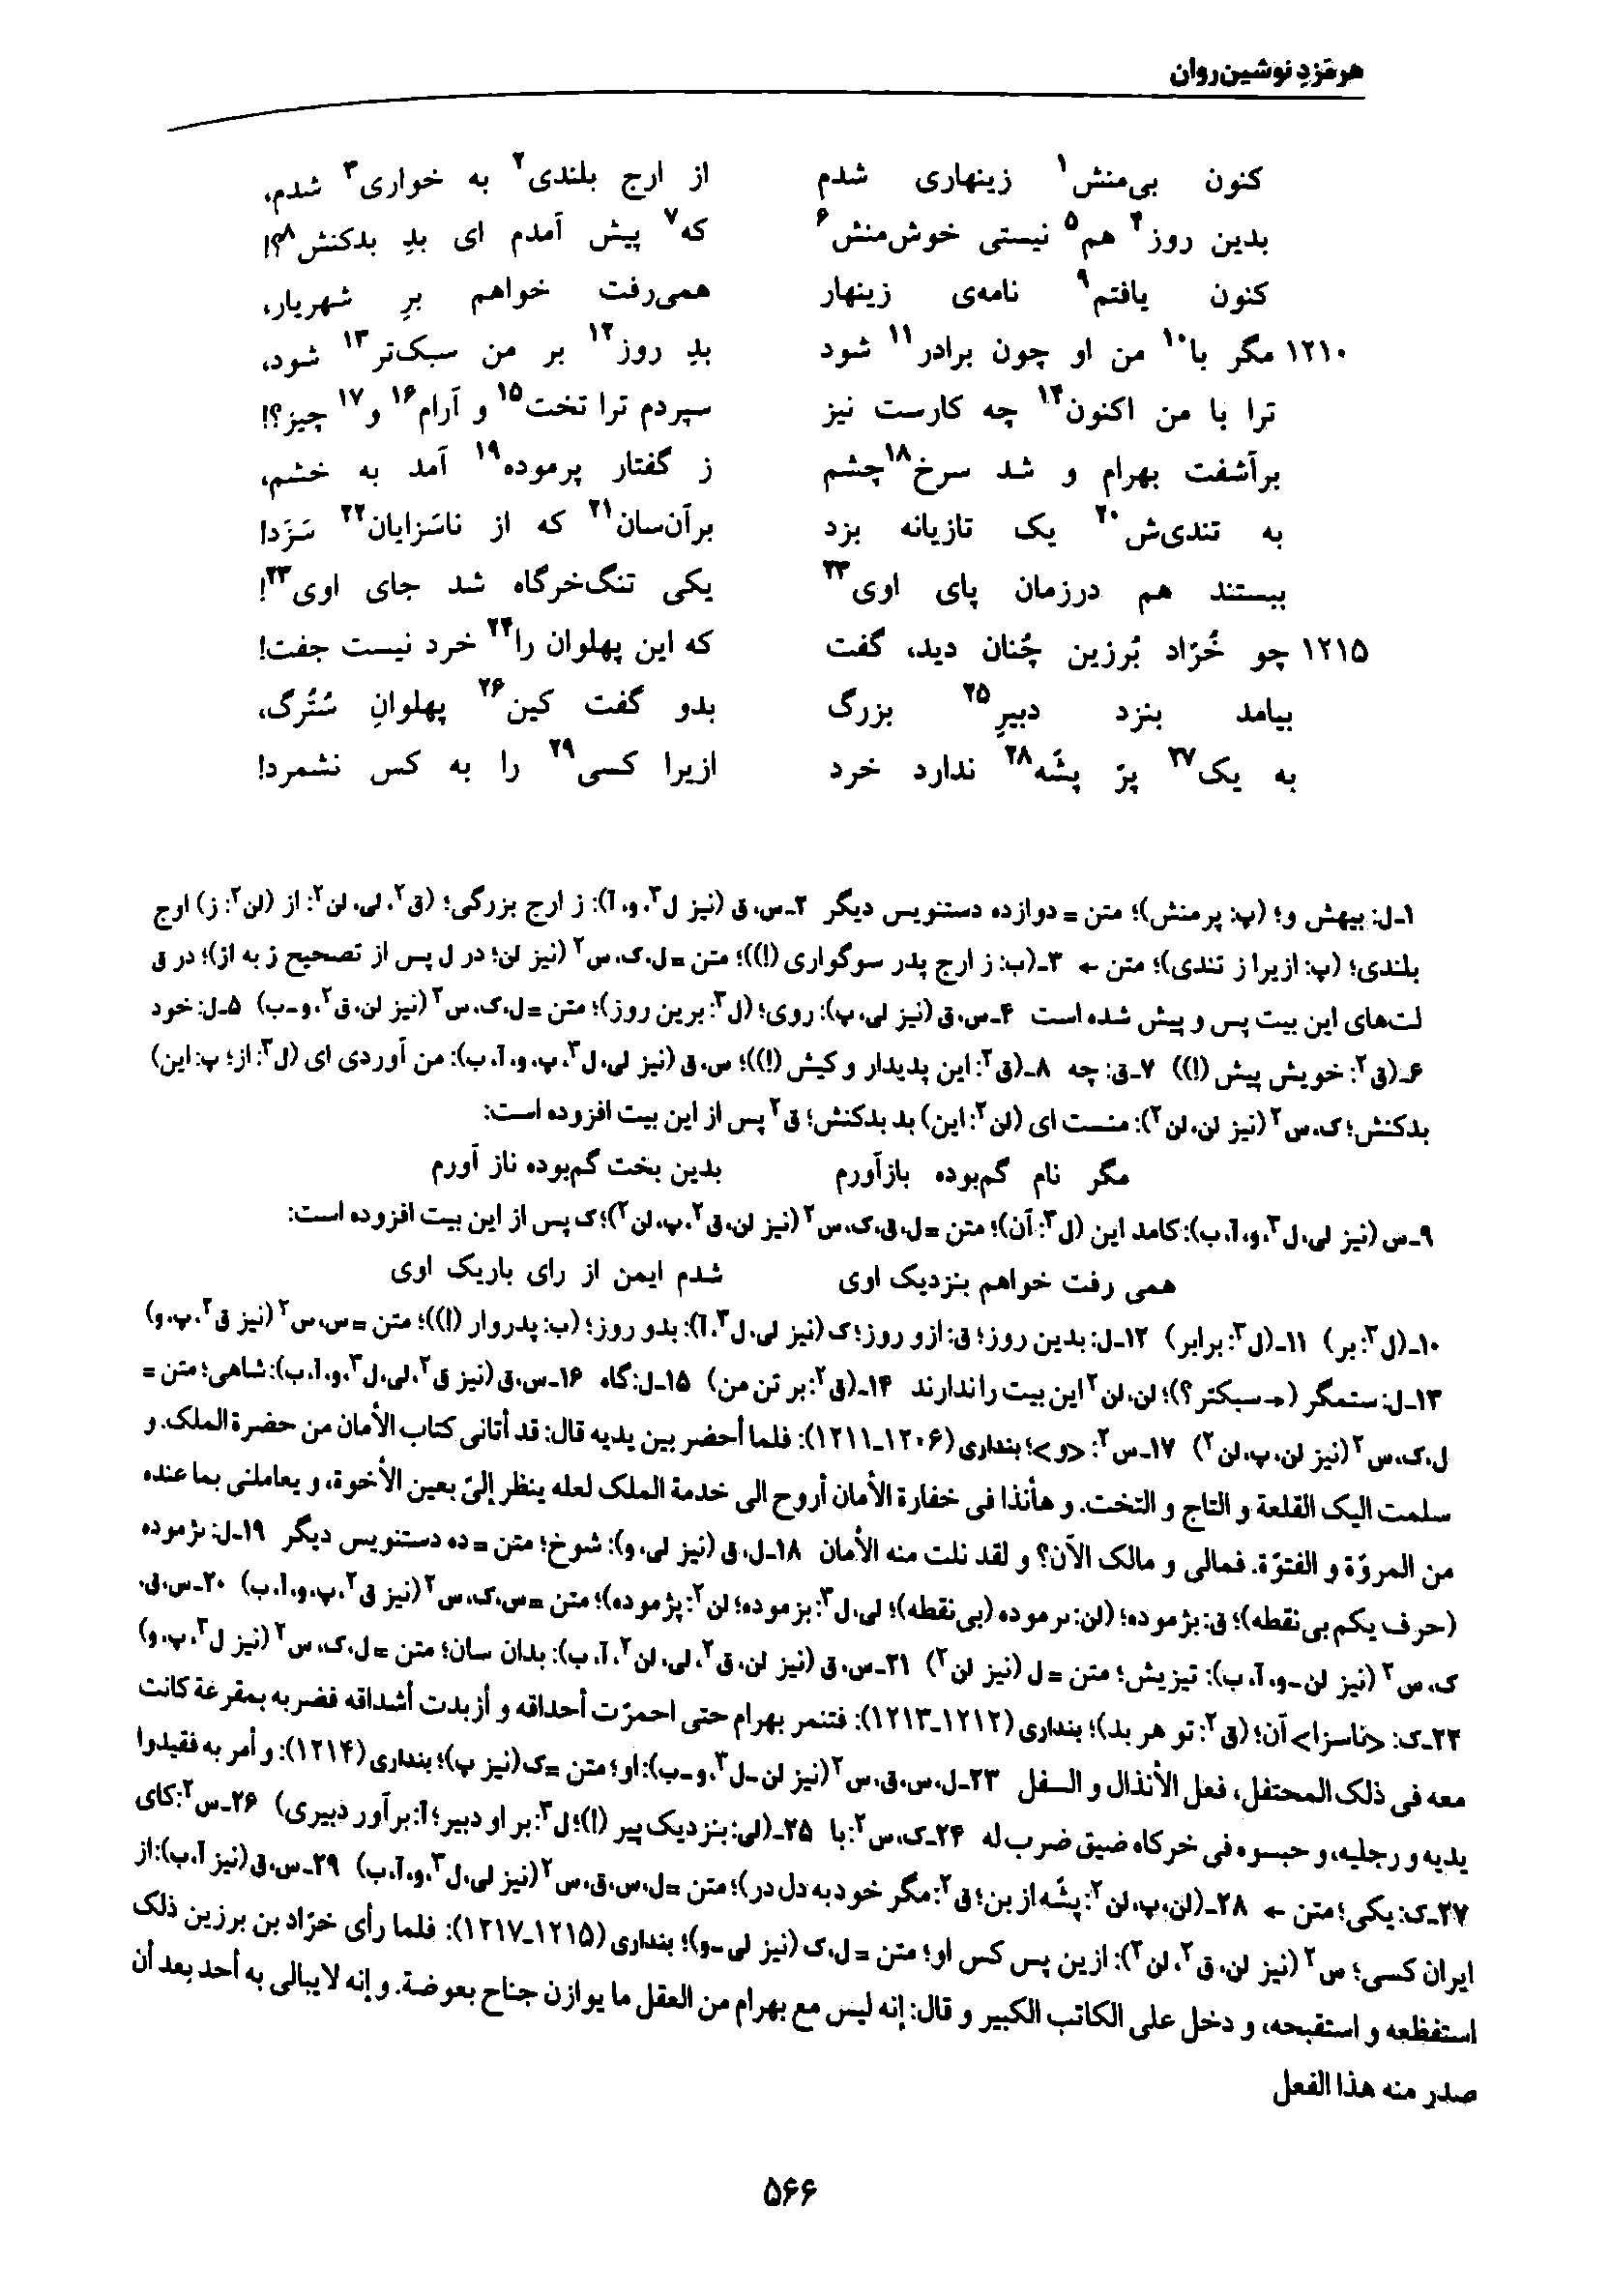 هرمَزدِ نوشین‌روان
کنون بی‌منش۱ زینهاری شدم از ارج بلندی۲ به خواری۳ شدم،
بدین روز۴ هم۵ نیستی خوش‌منش۶ که۷ پیش آمدم ای بدِ بدکنش۸؟!
کنون یافتم۹ نامه‌ی زینهار همی‌رفت خواهم برِ شهریار،
۱۲۱۰ مگر با۱۰ من او چون برادر۱۱ شود بدِ روز۱۲ بر من سبک‌تر۱۳ شود،
ترا با من اکنون۱۴ چه کارست نیز سپردم ترا تخت۱۵ و آرام۱۶ و۱۷ چیز؟!
برآشفت بهرام و شد سرخ۱۸ چشم ز گفتار پرموده۱۹ آمد به خشم،
به تندی‌ش۲۰ یک تازیانه بزد برآن‌سان۲۱ که از ناسَزایان۲۲ سَزَد!
ببستند هم درزمان پای اوی۲۳ یکی تنگ‌خرگاه شد جای اوی۲۳!
۱۲۱۵ چو خُرّاد بُرزین چُنان دید، گفت که این پهلوان را۲۴ خرد نیست جفت!
بیامد بنزد دبیرِ۲۵ بزرگ بدو گفت کین۲۶ پهلوانِ سُتُرگ،
به یک۲۷ پرّ پشّه۲۸ ندارد خرد ازیرا کسی۲۹ را به کس نشمرد!
۱ـ ل: بیهش و؛ (پ: پرمنش)؛ متن = دوازده دستنویس دیگر ۲ـ س، ق (نیز ل۳، و، آ): ز ارج بزرگی؛ (ق۲، لی، لن۲: از (لن۲: ز) ارج
بلندی؛ (پ: ازیرا ز تندی)؛ متن ← ۳ـ (ب: ز ارج پدر سوگواری (!))؛ متن = ل، ک، س۲ (نیز لن؛ در ل پس از تصحیح ز به از)؛ در ق
لت‌های این بیت پس و پیش شده است ۴ـ س، ق (نیز لی، پ): روی؛ (ل۳: برین روز)؛ متن = ل، ک، س۲ (نیز لن، ق۲، و-ب) ۵ـ ل: خود
۶ـ (ق۲: خویش پیش (!)) ۷ـ ق: چه ۸ـ (ق۲: این پدیدار و کیش (!))؛ س، ق (نیز لی، ل۳، پ، و، آ، ب): من آوردی ای (ل۳: از؛ پ: این)
بدکنش؛ ک، س۲ (نیز لن، لن۲): منست ای (لن۲: این) بد بدکنش؛ ق۲ پس از این بیت افزوده است:
مگر نام گم‌بوده بازآورم بدین بخت گم‌بوده ناز آورم
۹ـ س (نیز لی، ل۳، و، آ، ب): کامد این (ل۳: آن)؛ متن = ل، ق، ک، س۲ (نیز لن، ق۲، پ، لن۲)؛ ک پس از این بیت افزوده است:
همی رفت خواهم بنزدیک اوی شدم ایمن از رای باریک اوی
۱۰ـ (ل۳: بر) ۱۱ـ (ل۳: برابر) ۱۲ـ ل: بدین روز؛ ق: ازو روز؛ ک (نیز لی، ل۳، آ): بدو روز؛ (ب: پدروار (!))؛ متن = س، س۲ (نیز ق۲، پ، و)
۱۳ـ ل: ستمگر (← سبکتر؟)؛ لن، لن۲ این بیت را ندارند ۱۴ـ (ق۲: بر تن من) ۱۵ـ ل: گاه ۱۶ـ س، ق (نیز ق۲، لی، ل۳، و، آ، ب): شاهی؛ متن =
ل، ک، س۲ (نیز لن، پ، لن۲) ۱۷ـ س۲: <و>؛ بنداری (۱۲۰۶ـ۱۲۱۱): فلما أحضر بین یدیه قال: قد أتانی کتاب الأمان من حضرة الملک. و
سلمت الیک القلعة و التاج و التخت. و هأنذا فی خفارة الأمان أروح الی خدمة الملک لعله ینظر إلیّ بعین الأخوة، و یعاملنی بما عنده
من المروّة و الفتوّة. فمالی و مالک الآن؟ و لقد نلت منه الأمان ۱۸ـ ل، ق (نیز لی، و): شوخ؛ متن = ده دستنویس دیگر ۱۹ـ ل: ںژموده
(حرف یکم بی‌نقطه)؛ ق: بژموده؛ (لن: ںرموده (بی‌نقطه)؛ لی، ل۳: بزموده؛ لن۲: پژموده)؛ متن = س، ک، س۲ (نیز ق۲، پ، و، آ، ب) ۲۰ـ س، ق،
ک، س۲ (نیز لن-و، آ، ب): تیزیش؛ متن = ل (نیز لن۲) ۲۱ـ س، ق (نیز لن، ق۲، لی، لن۲، آ، ب): بدان سان؛ متن = ل، ک، س۲ (نیز ل۳، پ، و)
۲۲ـ ک: <ناسزا> آن؛ (ق۲: تو هر بد)؛ بنداری (۱۲۱۲ـ۱۲۱۳): فتنمر بهرام حتی احمرّت أحداقه و أزبدت أشداقه فضربه بمقرعة کانت
معه فی ذلک المحتفل، فعل الأنذال و السفل ۲۳ـ ل، س، ق، س۲ (نیز لن-ل۳، و-ب): او؛ متن = ک (نیز پ)؛ بنداری (۱۲۱۴): و أمر به فقیدوا
یدیه و رجلیه، و حبسوه فی خرکاه ضیق ضرب له ۲۴ـ ک، س۲: با ۲۵ـ (لی: بنزدیک پیر (!)؛ ل۳: بر او دبیر؛ آ: برآور دبیری) ۲۶ـ س۲: کای
۲۷ـ ک: یکی؛ متن ← ۲۸ـ (لن، پ، لن۲: پشّه از بن؛ ق۲: مگر خود به دل در)؛ متن = ل، س، ق، س۲ (نیز لی، ل۳، و، آ، ب) ۲۹ـ س، ق (نیز آ، ب): از
ایران کسی؛ س۲ (نیز لن، ق۲، لن۲): ازین پس کس او؛ متن = ل، ک (نیز لی-و)؛ بنداری (۱۲۱۵ـ۱۲۱۷): فلما رأی خرّاد بن برزین ذلک
استفظعه و استقبحه، و دخل علی الکاتب الکبیر و قال: إنه لیس مع بهرام من العقل ما یوازن جناح بعوضة. و إنه لایبالی به أحد بعد أن
صدر منه هذا الفعل
۵۶۶